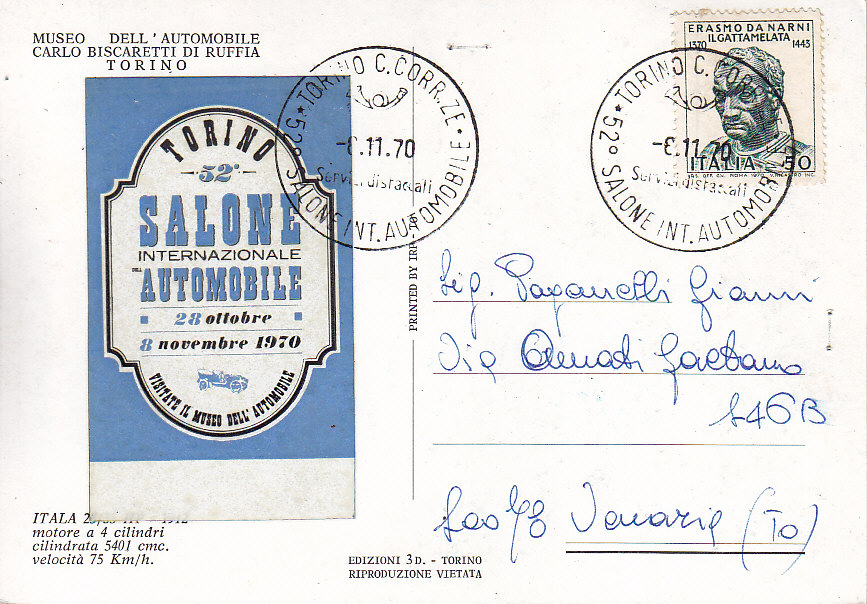 MUSEO DELL'AUTOMOBILE
CARLO BISCARETTI DI RUFFIA
TORINO
TORINO
52°
SALONE
INTERNAZIONALE
DELL'
AUTOMOBILE
28 ottobre
8 novembre 1970
VISITATE IL MUSEO DELL'AUTOMOBILE
TORINO C.CORR.ZE
-8.11.70
Servizi distaccati
52° SALONE INT. AUTOMOBILE
ERASMO DA NARNI
IL GATTAMELATA
1370 1443
ITALIA 50
TORINO C. CORR
-8.11.70
Servizi distaccati
52° SALONE INT. AUTOMOB
PRINTED BY
Sig. Paganelli Gianni
Via Amati Gaetano
146B
10078 Venaria (To)
ITALA
motore a 4 cilindri
cilindrata 5401 cmc.
velocità 75 Km/h.
EDIZIONI 3D. - TORINO
RIPRODUZIONE VIETATA